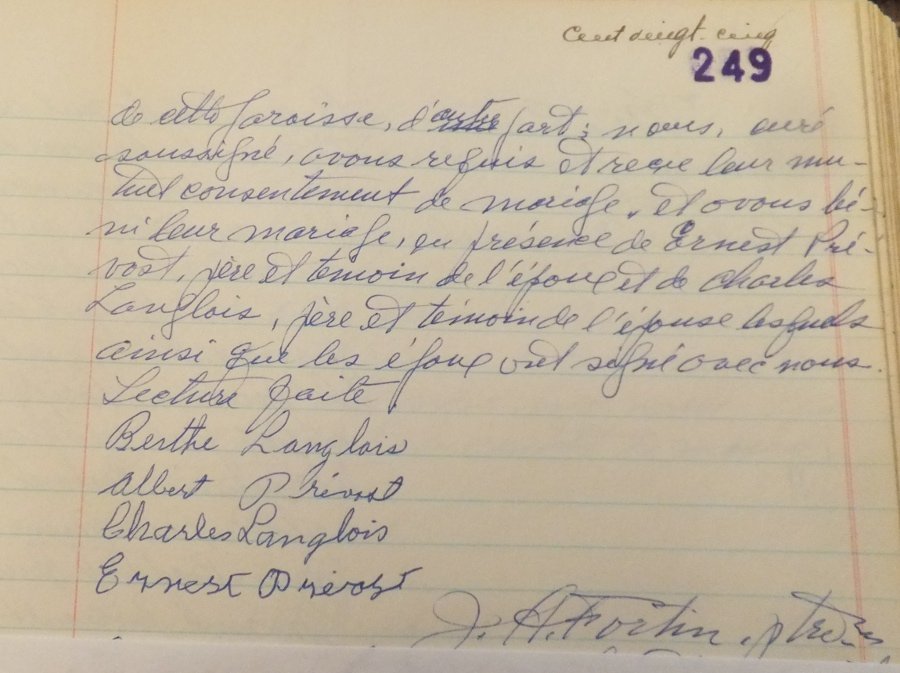 Cent vingt-cinq
249
de cette paroisse, d'autre part; nous, curé
soussigné, avons requis et reçu leur mu-
tuel consentement de mariage, et avons bé-
ni leur mariage, en présence de Ernest Pré-
vost, père et témoin de l'époux et de Charles
Langlois, père et témoin de l'épouse lesquels
ainsi que les époux ont signé avec nous.
Lecture faite.
Berthe Langlois
Albert Prévost
Charles Langlois
Ernest Prévost
J. A. Fortin, ptre